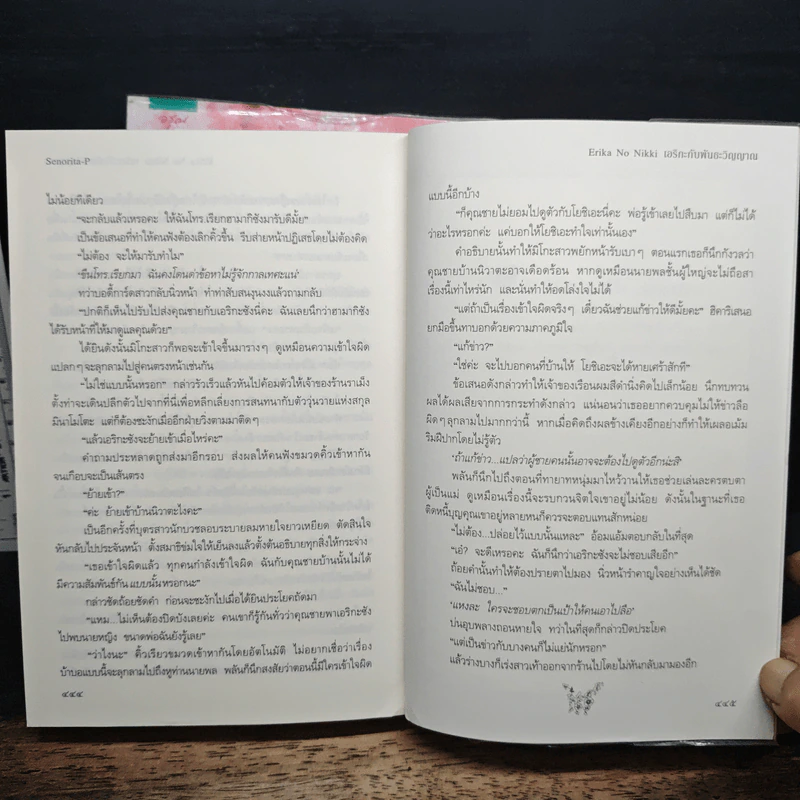 Senorita-P
ไม่น้อยทีเดียว
“จะกลับแล้วเหรอคะ ให้ฉันโทร.เรียกฮามากิซังมารับดีมั้ย”
เป็นข้อเสนอที่ทำให้คนฟังต้องเลิกคิ้วขึ้น รีบส่ายหน้าปฏิเสธโดยไม่ต้องคิด
“ไม่ต้อง จะให้มารับทำไม”
‘ขืนโทร.เรียกมา ฉันคงโดนด่าข้อหาไม่รู้จักกาลเทศะแน่’
ทว่าบอดี้การ์ดสาวกลับนิ่วหน้า ทำท่าสับสนงุนงงแล้วถามกลับ
“ปกติก็เห็นไปรับไปส่งคุณชายกับเอริกะซังนี่คะ ฉันเลยนึกว่าฮามากิซัง
ได้รับหน้าที่ให้มาดูแลคุณด้วย”
ได้ยินดังนั้นมิโกะสาวก็พอจะเข้าใจขึ้นมารางๆ ดูเหมือนความเข้าใจผิด
แปลกๆ จะลุกลามไปสู่คนตรงหน้าเช่นกัน
“ไม่ใช่แบบนั้นหรอก” กล่าวรัวเร็วแล้วหันไปค้อมตัวให้เจ้าของร้านราเม็ง
ตั้งท่าจะเดินปลีกตัวไปจากที่นี่เพื่อหลีกเลี่ยงการสนทนากับตัววุ่นวายแห่งสกุล
มินาโมโตะ แต่ก็ต้องชะงักเมื่ออีกฝ่ายวิ่งตามมาติดๆ
“แล้วเอริกะซังจะย้ายเข้าเมื่อไหร่คะ”
คำถามประหลาดถูกส่งมาอีกรอบ ส่งผลให้คนฟังขมวดคิ้วเข้าหากัน
จนเกือบจะเป็นเส้นตรง
“ย้ายเข้า?”
“ค่ะ ย้ายเข้าบ้านนิวาตะไงคะ”
เป็นอีกครั้งที่บุตรสาวนักบวชลอบระบายลมหายใจยาวเหยียด ตัดสินใจ
หันกลับไปประจันหน้า ตั้งสมาธิข่มใจให้เย็นลงแล้วตั้งต้นอธิบายทุกสิ่งให้กระจ่าง
“เธอเข้าใจผิดแล้ว ทุกคนกำลังเข้าใจผิด ฉันกับคุณชายบ้านนั้นไม่ได้
มีความสัมพันธ์กันแบบนั้นหรอกนะ”
กล่าวชัดถ้อยชัดคำ ก่อนจะชะงักไปเมื่อได้ยินประโยคถัดมา
“แหม...ไม่เห็นต้องปิดบังเลยค่ะ คนเขาก็รู้กันทั่วว่าคุณชายพาเอริกะซัง
ไปพบนายหญิง ขนาดพ่อฉันยังรู้เลย”
“ว่าไงนะ” คิ้วเรียวขมวดเข้าหากันโดยอัตโนมัติ ไม่อยากเชื่อว่าเรื่อง
บ้าบอแบบนี้จะลุกลามไปถึงหูท่านนายพล พลันก็นึกสงสัยว่าตอนนี้มีใครเข้าใจผิด
๔๔๔
Erika No Nikki เอริกะกับพันธะวิญญาณ
แบบนี้อีกบ้าง
“ก็คุณชายไม่ยอมไปดูตัวกับโยชิเอะนี่คะ พ่อรู้เข้าเลยไปสืบมา แต่ก็ไม่ได้
ว่าอะไรหรอกค่ะ แค่บอกให้โยชิเอะทำใจเท่านั้นเอง”
คำอธิบายนั้นทำให้มิโกะสาวพยักหน้ารับเบาๆ ตอนแรกเธอก็นึกกังวลว่า
คุณชายบ้านนิวาตะอาจเดือดร้อน หากดูเหมือนนายพลชั้นผู้ใหญ่จะไม่ถือสา
เรื่องนี้เท่าไหร่นัก และนั่นทำให้อดโล่งใจไม่ได้
“แต่ถ้าเป็นเรื่องเข้าใจผิดจริงๆ เดี๋ยวฉันช่วยแก้ข่าวให้ดีมั้ยคะ” ฮิคาริเสนอ
ยกมือขึ้นทาบอกด้วยความภาคภูมิใจ
“แก้ข่าว?”
“ใช่ค่ะ จะไปบอกคนที่บ้านให้ โยชิเอะจะได้หายเศร้าสักที”
ข้อเสนอดังกล่าวทำให้เจ้าของเรือนผมสีดำนิ่งคิดไปเล็กน้อย นึกทบทวน
ผลได้ผลเสียจากการกระทำดังกล่าว แน่นอนว่าเธออยากควบคุมไม่ให้ข่าวลือ
ผิดๆ ลุกลามไปมากกว่านี้ หากเมื่อคิดถึงผลข้างเคียงอีกอย่างก็ทำให้เผลอเม้ม
ริมฝีปากโดยไม่รู้ตัว
‘ถ้าแก้ข่าว...แปลว่าผู้ชายคนนั้นอาจจะต้องไปดูตัวอีกน่ะสิ’
พลันก็นึกไปถึงตอนที่ทายาทหนุ่มมาไหว้วานให้เธอช่วยเล่นละครตบตา
ผู้เป็นแม่ ดูเหมือนเรื่องนี้จะรบกวนจิตใจเขาอยู่ไม่น้อย ดังนั้นในฐานะที่เธอ
ติดหนี้บุญคุณเขาอยู่หลายหนก็ควรจะตอบแทนสักหน่อย
“ไม่ต้อง...ปล่อยไว้แบบนั้นแหละ” อ้อมแอ้มตอบกลับในที่สุด
“เอ๋? จะดีเหรอคะ ฉันก็นึกว่าเอริกะซังจะไม่ชอบเสียอีก”
ถ้อยคำนั้นทำให้ต้องปรายตาไปมอง นิ่วหน้ารำคาญใจอย่างเห็นได้ชัด
“ฉันไม่ชอบ...”
‘แหงละ ใครจะชอบตกเป็นเป้าให้คนเอาไปลือ’
บ่นอุบพลางถอนหายใจ ทว่าในที่สุดก็กล่าวปิดประโยค
“แต่เป็นข่าวกับบางคนก็ไม่แย่นักหรอก”
แล้วร่างบางก็เร่งสาวเท้าออกจากร้านไปโดยไม่หันกลับมามองอีก
๔๔๕